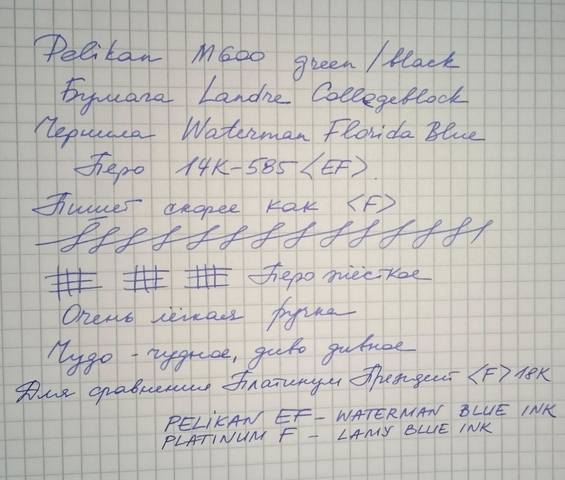 Pelikan M600 green/black
Бумага Landre Collegeblock
Чернила Waterman Florida Blue
Перо 14K-585 <EF>.
Пишет скорее как <F>
Перо жёсткое
Очень лёгкая ручка
Чудо-чудное, диво дивное
Для сравнения Платинум Президент <F> 18K
PELIKAN EF - WATERMAN BLUE INK
PLATINUM F - LAMY BLUE INK